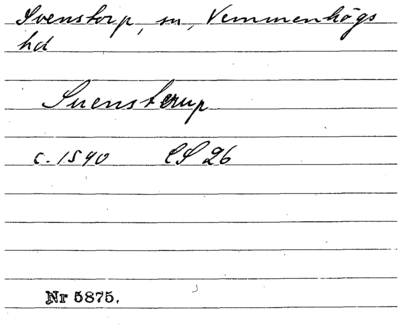 Svenstorp, sn, Vemmenhögs
hd
Suensterup
c. 1590 CS 26
Nr 5875.